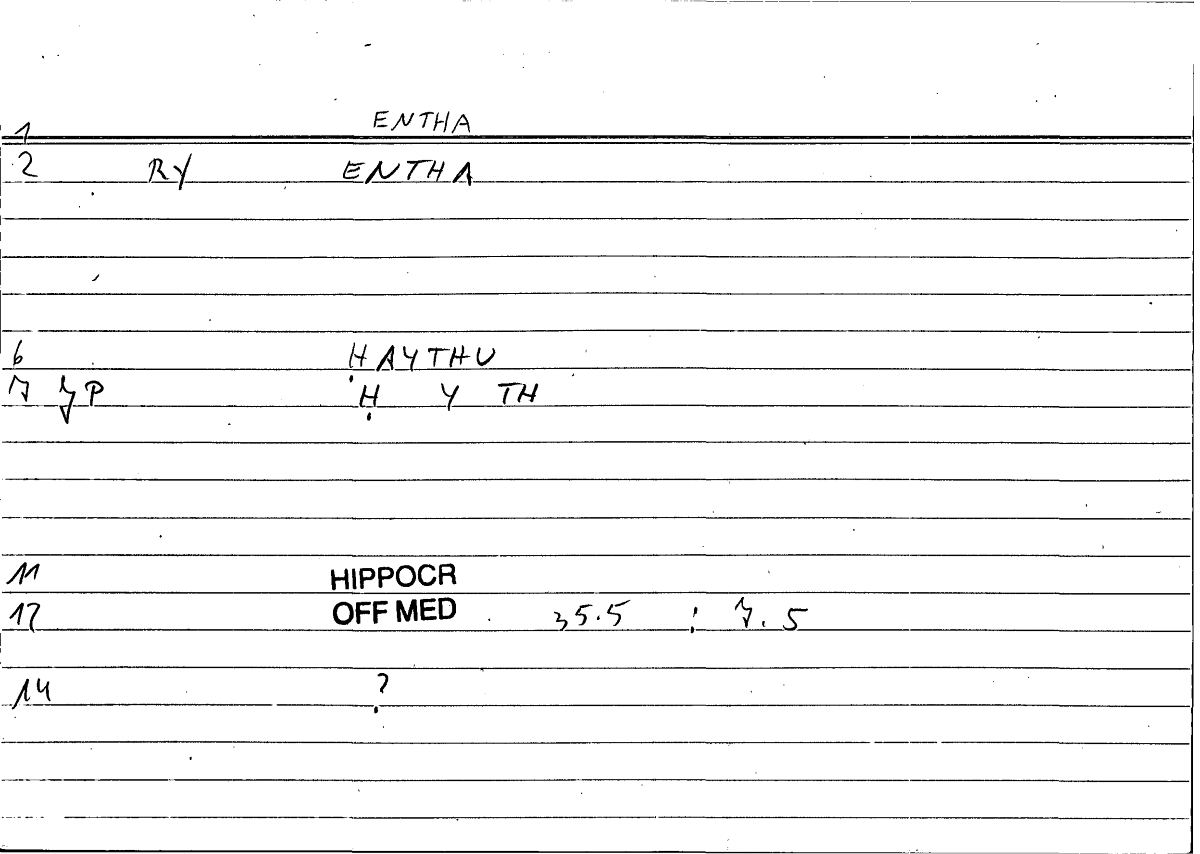 1 ENTHA
2 RY ENTHA
6 HAYTHU
7 ZP H Y TH
11 HIPPOCR
12 OFF MED 35.5 : 7.5
14 ?